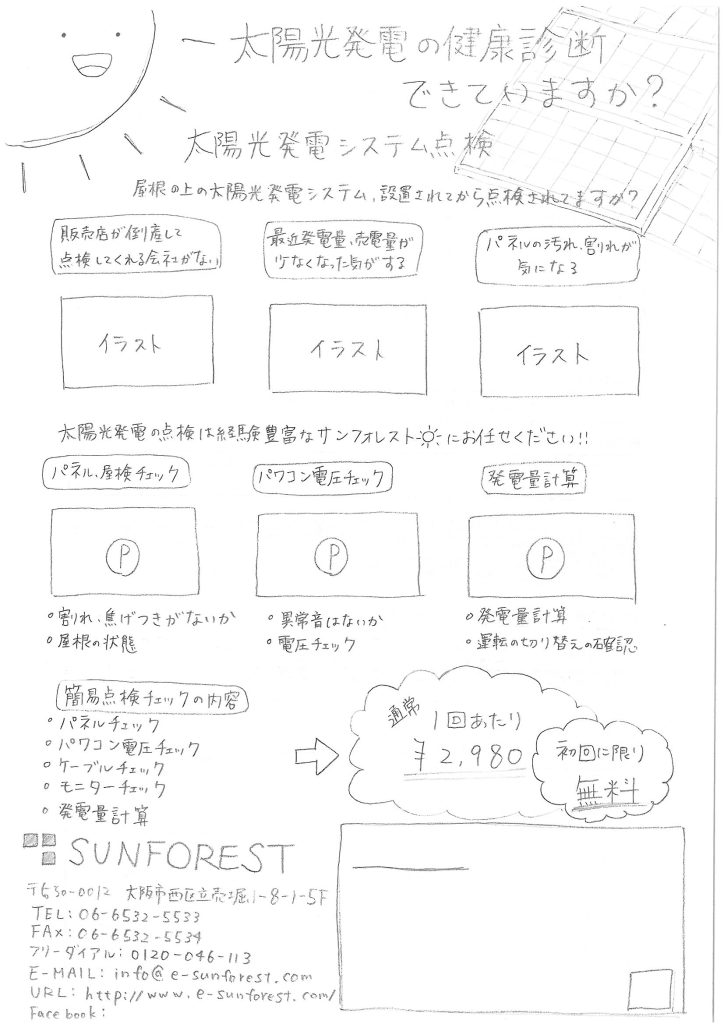 太陽光発電の健康診断
できていますか?
太陽光発電システム点検
屋根の上の太陽光発電システム、設置されてから点検されてますか?
販売店が倒産して
点検してくれる会社がない
最近発電量、売電量が
少なくなった気がする
パネルの汚れ、割れが
気になる
イラスト
イラスト
イラスト
太陽光発電の点検は経験豊富なサンフォレストにお任せください!!
パネル、屋検チェック
パワコン電圧チェック
発電量計算
P
P
P
○割れ、焦げつきがないか
○屋根の状態
○異常音はないか
○電圧チェック
○発電量計算
○運転の切り替えの確認
簡易点検チェックの内容
○パネルチェック
○パワコン電圧チェック
○ケーブルチェック
○モニターチェック
○発電量計算
通常
1回あたり
¥2,980
初回に限り
無料
SUNFOREST
〒530-0012 大阪市西区立売堀1-8-1-5F
TEL:06-6532-5533
FAX:06-6532-5534
フリーダイアル:0120-046-113
E-MAIL: info@e-sunforest.com
URL: http://www.e-sunforest.com/
Facebook: